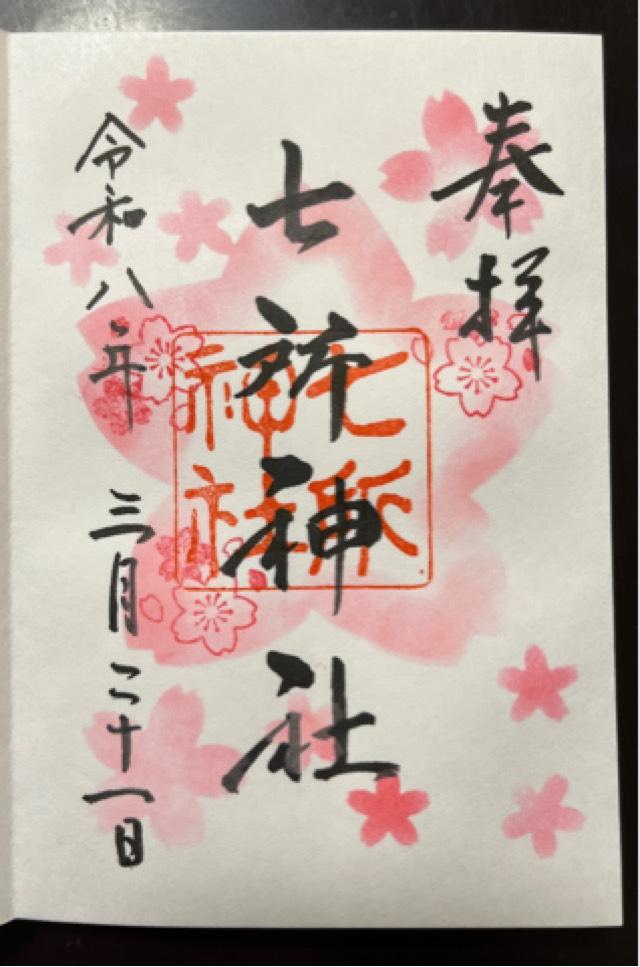 奉拝
七所神社
七所
神社
令和八年 三月二十一日